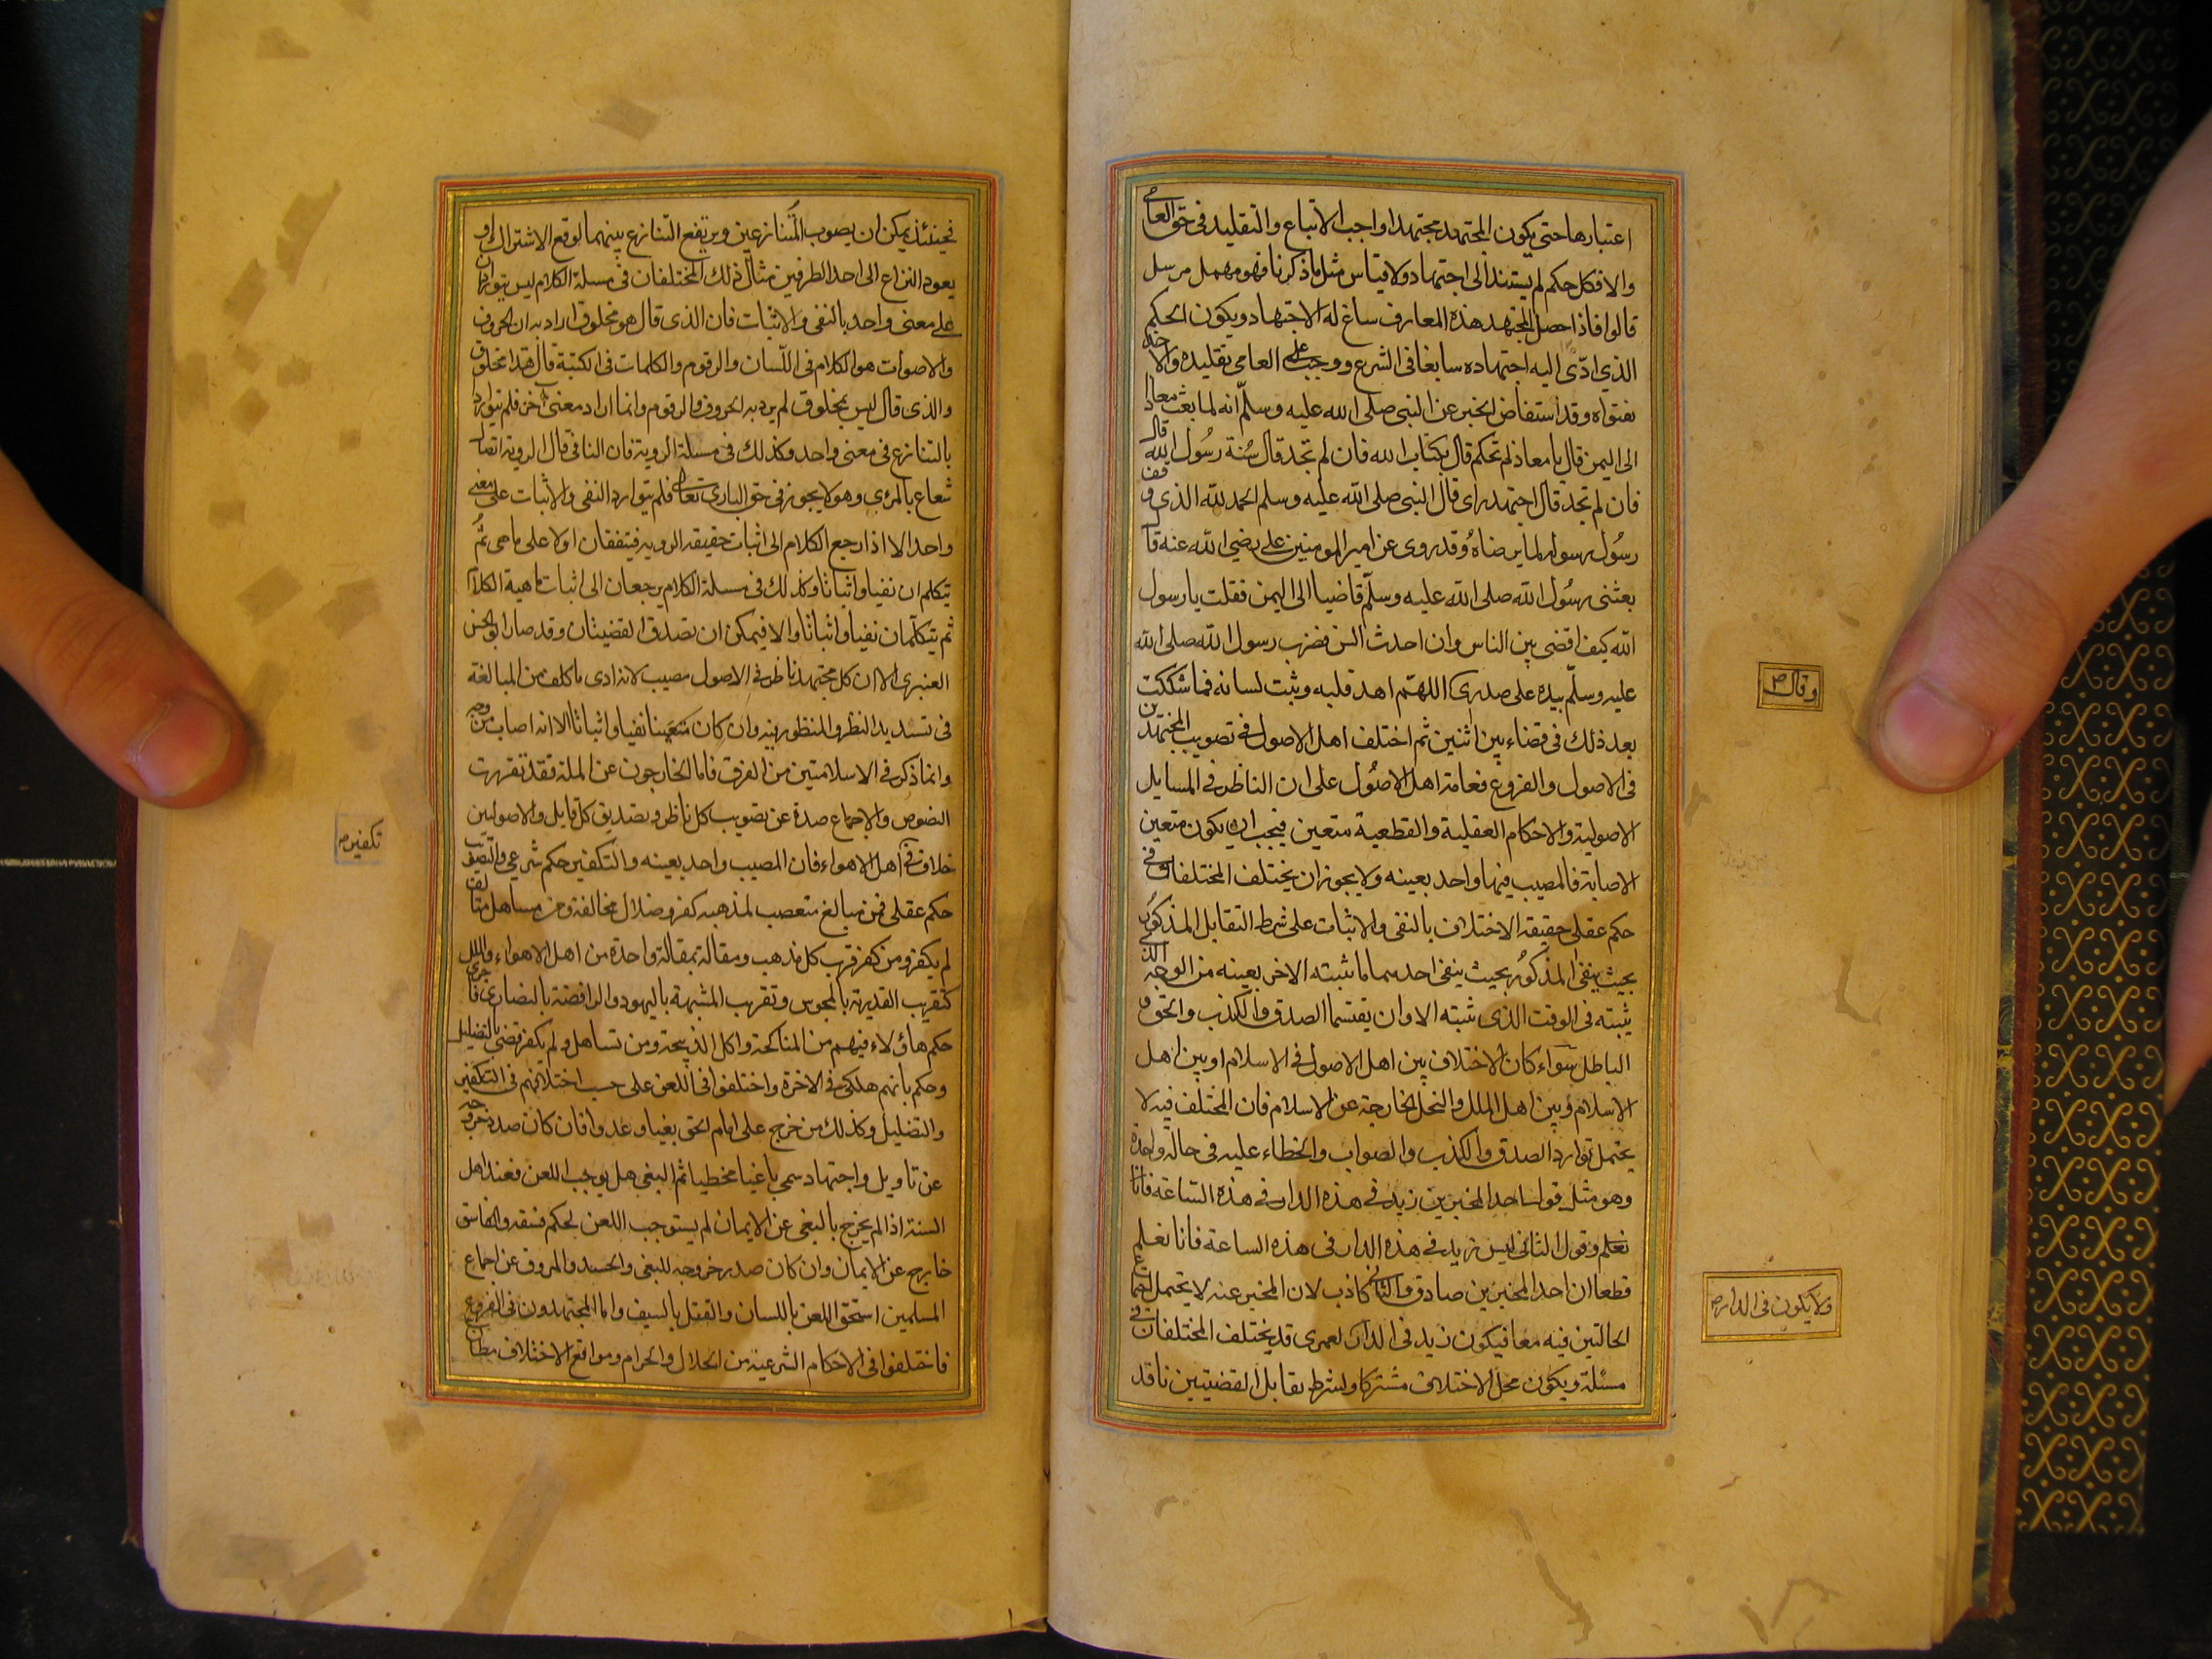 اعتبارها حتى يكون المجتهد مجتهدا واجب الاتباع والتقليد في حق العامي
والا فكل حكم لم يستند الى اجتهاد ولا قياس مثل ما ذكرنا فهو مهمل مرسل
قالوا فاذا حصل المجتهد هذه المعارف ساغ له الاجتهاد ويكون الحكم
الذي ادّى اليه اجتهاده سايغا في الشرع ووجب على العامي تقليده والاخذ
بفتواه وقد استفاض الخبر عن النبي صلى الله عليه وسلّم انه لما بعث معاذا
الى اليمن قال يا معاذ بم تحكم قال بكتاب الله فان لم تجد قال سُنة رسُول الله قال
فان لم تجد قال اجتهد راى قال النبي صلى الله عليه وسلم الحمد لله الذى وفق
رسُول رسوله لما يرضاهُ وقد روى عن امير المومنين على رضي الله عنه قا
بعثنى رسُول الله صلى الله عليه وسلّم قاضيا الى اليمن فقلت يا رسول
الله كيف اقضى بين الناس وان احدث السن فضرب رسول الله صلى الله
عليه وسلّم بيده على صدرى اللهتم اهد قلبه وثبت لسانه فما شككت
وقال صح
بعد ذلك فى قضاء بين اثنين ثم اختلف اهل الاصول فى تصويب المجتهدين
فى الاصول والفروع فعامة اهل الاصُول على ان الناظر فى المسايل
الاصولية والاحكام العقلية والقطعية متعين فيجب ان يكون متعين
الاصابة فالمصيب فيها واحد بعينه ولا يجوز ان يختلف المختلفان فى
حكم عقلى حقيقة الاختلاف بالنفى والاثبات على شرط التقابل المذكوُر
بحيث ينفى المذكوُر بحيث ينفى احدهما ما يثبته الاخر بعينه من الوجه الذى
يثبته فى الوقت الذى يثبته الا وان يقتسما الصدق والكذب والحق و
الباطل سَواء كان الاختلاف بين اهل الاصول فى الاسلام او بين اهل
الاسلام وبين اهل الملل والنحل الخارجة عن الاسلام فان المختلف فيه لا
يحتمل توارد الصدق والكذب والصواب والخطاء عليه فى حالة واحدة
وهو مثل قول احد المخبرين زيد فى هذه الدار فى هذه الساعة فانا
نعلم وقول الثانى ليس زيد فى هذه الدار فى هذه الساعة فانا نعلم
قطعا ان احد المخبرين صادق والثانى كاذب لان المخبر عنه لا يحتمل اجتماع
الحالتين فيه معا فيكون زيد فى الدار لعمرى قد يختلف المختلفان فى
ولا يكون فى الدار صح
مسئلة ويكون محل الاختلاف مشتركا وشرط تقابل القضيتين ناقد
فحينئذ يمكن ان يصوب المتنازعين ويرتفع التنازع بينهما لوقع الاشتراك او
يعود النزاع الى احد الطرفين مثال ذلك المختلفان فى مسلة الكلام ليس يتواردان
على معنى واحد بالنفى والاثبات فان الذى قال هو مخلوق اراد به ان الحروف
والاصوات هو الكلام فى اللّسان والرقوم والكلمات فى الكتبة قال هذا مخلوق
والذى قال ليس بمخلوق لم يرد به الحروف والرقوم وانما اراد معنى اخر فلم يتواردا
بالتنازع فى معنى واحد وكذلك فى مسلة الروية فان النافى قال الروية اتصال
شعاع بالمرئى وهو لا يجوز فى حق البارى تعالى فلم يتوارد النفى والاثبات على معنى
واحد الا اذا رجع الكلام الى اثبات حقيقة الروية فيتفقان اولا على ما هى ثمُّ
يتكلمان نفيا واثباتا وكذلك فى مسلة الكلام يرجعان الى اثبات ماهية الكلام
ثم يتكلّمان نفيا واثباتا والا فيمكن ان تصدق القضيتان وقد صار ابو الحسن
العنبرى الا ان كل مجتهد ناظر فى الاصول مصيب لانه ادى ما كلف من المبالغة
فى تسديد النظر والمنظور فيه وان كان متعينا نفيا واثباتا الا انه اصاب من وجه
وانما ذكر فى الاسلامتين من الفرق فاما الخارجون عن الملة فقد تقررت
النصوص والاجماع صدة عن تصويب كل ناظر وتصديق كل قايل والاصوليين
تكفير صح
خلاف فى اهل الاهواء فان المصيب واحد بعينه والتكفير حكم شرعي والتصويب
حكم عقلى فمن مبالغ متعصب لمذهبه كفر وضلال مخالفه ومن مساهل متالف
لم يكفر ومن كفر قرب كل مذهب ومقالة بمقالة واحدة من اهل الاهواء والملل
كتقريب القدرية بالمجوس وتقريب المشبهة باليهود والرافضة بالنصارى فاجرى
حكم هاؤلاء فيهم من المناكحة واكل الذبيحة ومن تساهل ولم يكفر قضى بالتضليل
وحكم بانهم هلكى فى الاخرة واختلفوا فى اللعن على حسب اختلافهم فى التكفير
والتضليل وكذلك من خرج على امام الحق بغيا وعدوا فان كان صدر خروجه
عن تاويل واجتهاد سمى باغيا مخطيا ثم البغى هل يوجب اللعن فعند اهل
السنة اذا لم يخرج بالبغى عن الايمان لم يستوجب اللعن لحكم فسقه والفاسق
خارج عن الايمان وان كان صدر خروجه للبغى والحسد والمروق عن اجماع
المسلمين استحق اللعن باللسان والقتل بالسيف واما المجتهدون فى الفروع
فاختلفوا فى الاحكام الشرعية من الحلال والحرام ومواقع الاختلاف مظان